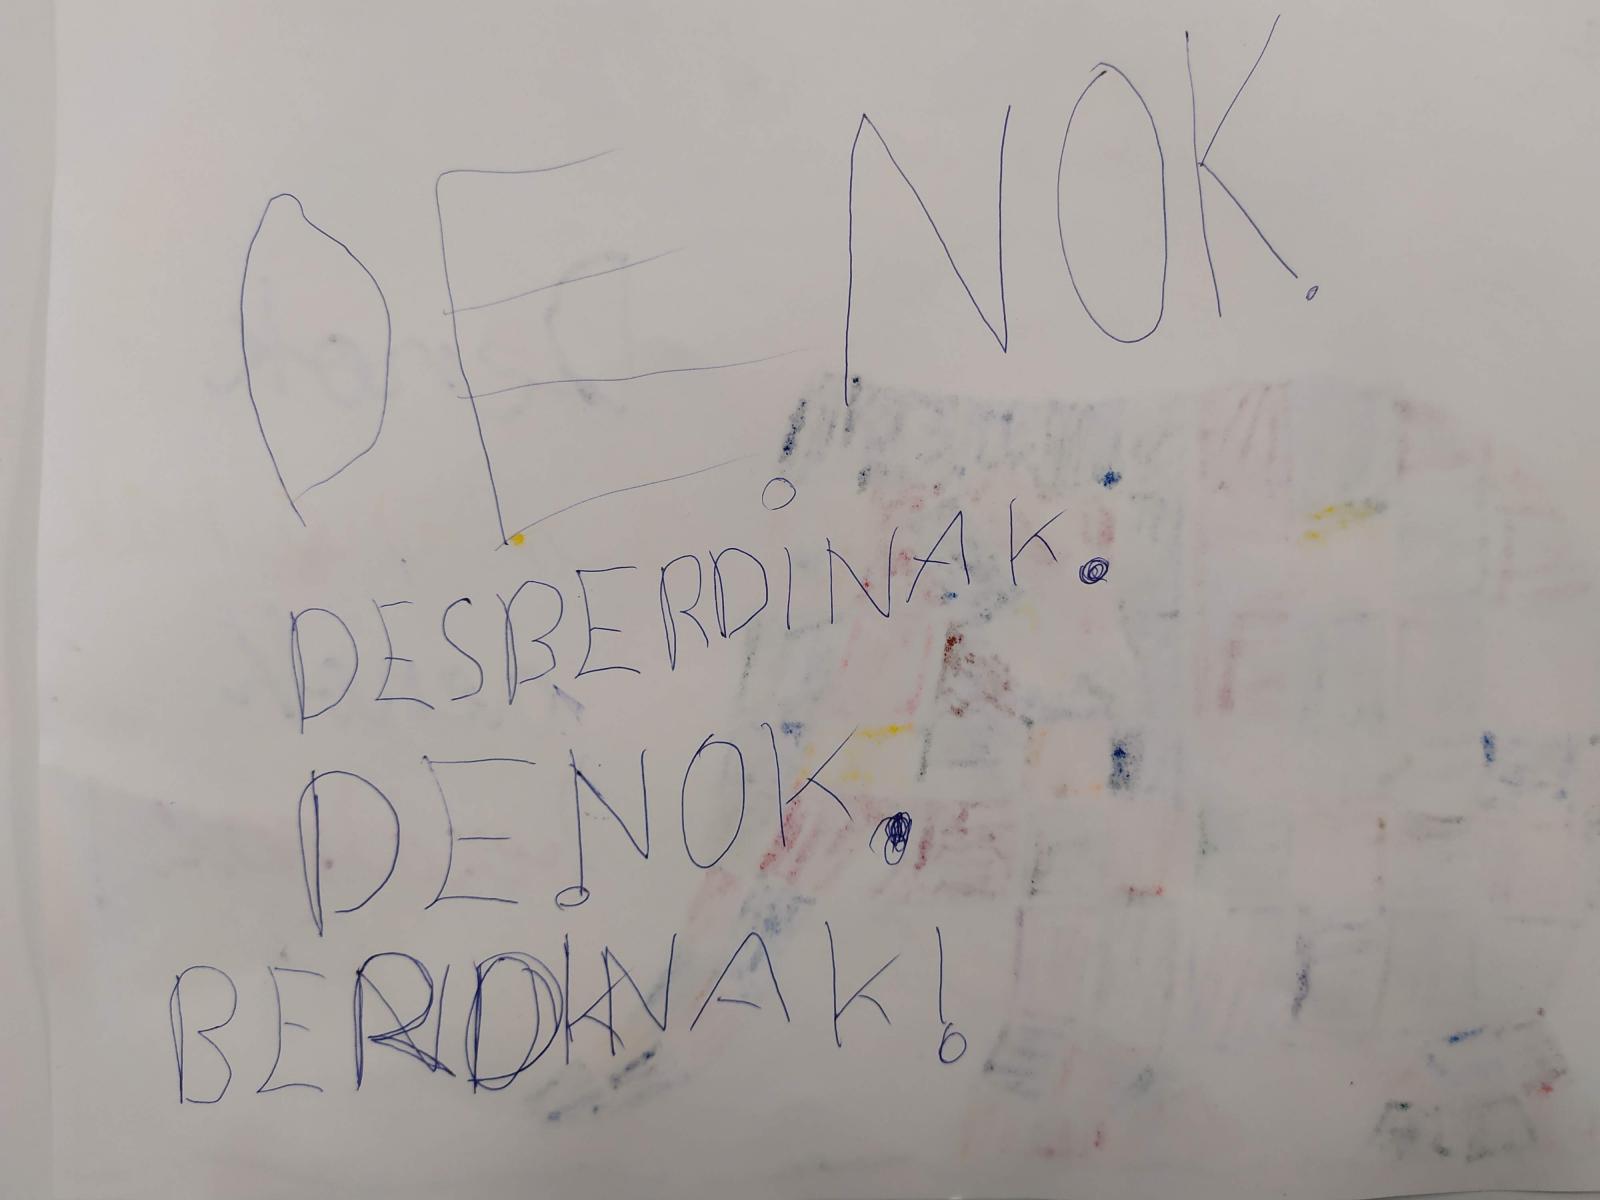 DENOK.
DESBERDINAK.
DENOK.
BERDINAK!